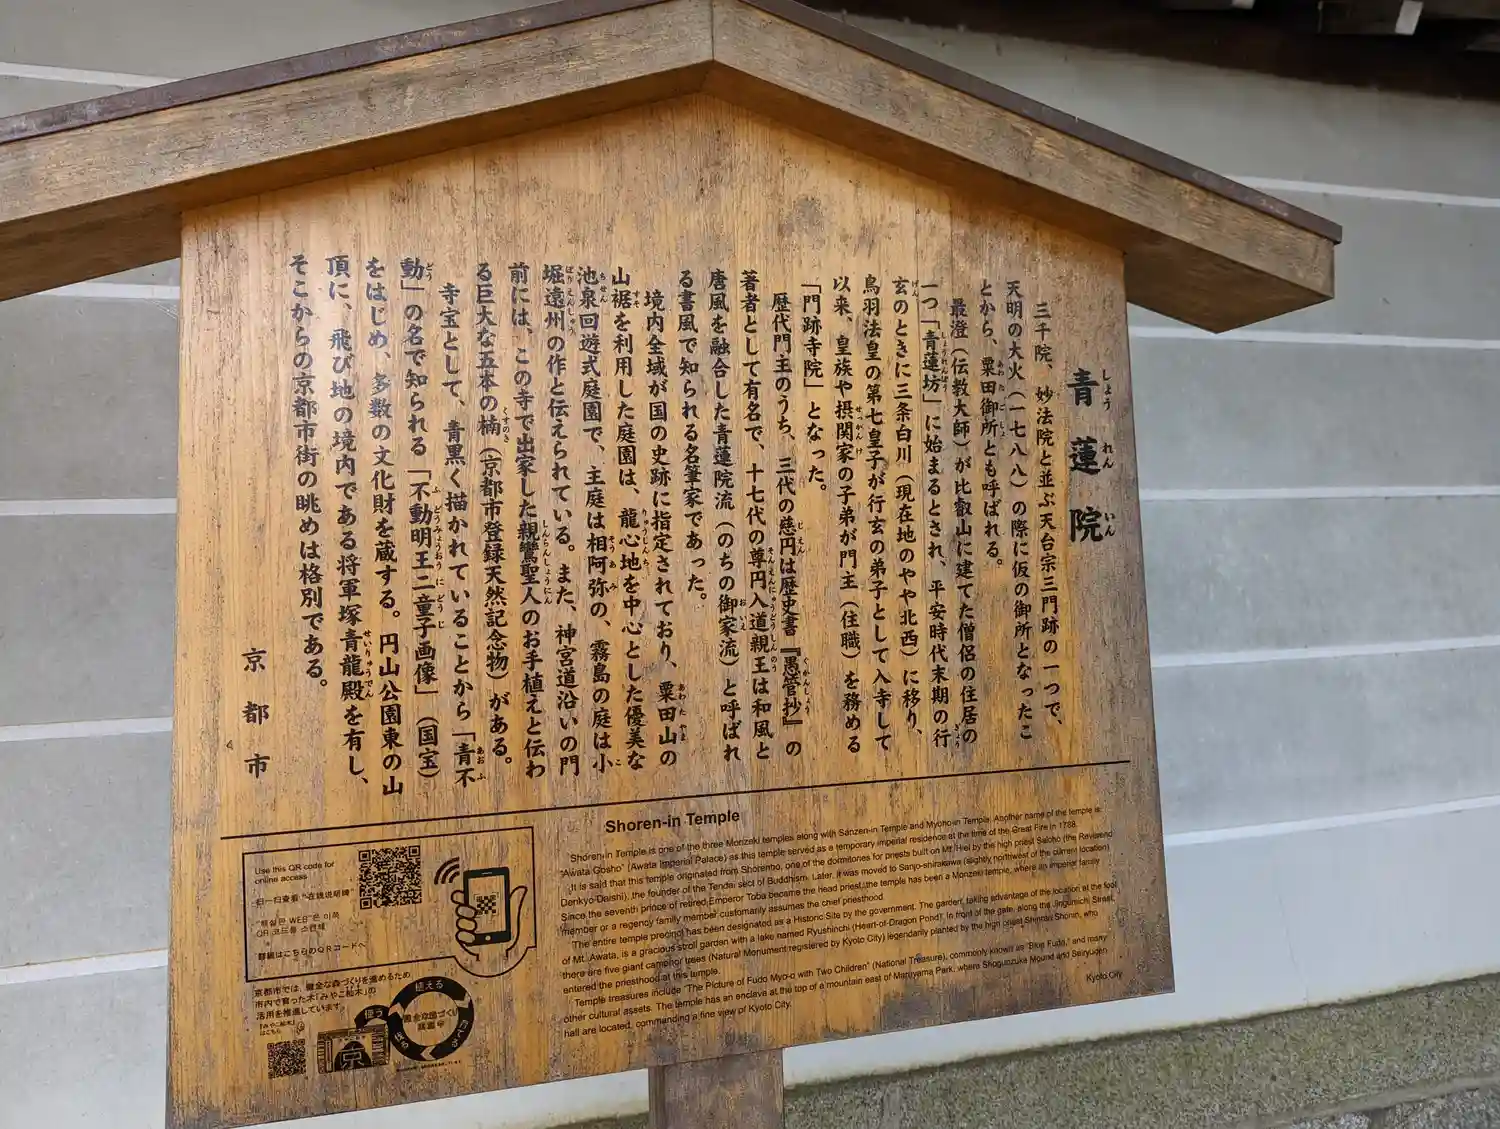 青蓮院
しょうれんいん
三千院、妙法院と並ぶ天台宗三門跡の一つで、
天明の大火(一七八八)の際に仮の御所となったこ
とから、粟田御所とも呼ばれる。
あわたごしょ
最澄(伝教大師)が比叡山に建てた僧侶の住居の
一つ「青蓮坊」に始まるとされ、平安時代末期の行
しょうれんぼう
ぎょう
玄のときに三条白川(現在地のやや北西)に移り、
げん
鳥羽法皇の第七皇子が行玄の弟子として入寺して
以来、皇族や摂関家の子弟が門主(住職)を務める
せっかんけ
「門跡寺院」となった。
歴代門主のうち、三代の慈円は歴史書『愚管抄』の
じえん
ぐかんしょう
著者として有名で、十七代の尊円入道親王は和風と
そんえんにゅうどうしんのう
唐風を融合した青蓮院流(のちの御家流)と呼ばれ
おいえ
る書風で知られる名筆家であった。
境内全域が国の史跡に指定されており、粟田山の
あわたやま
山裾を利用した庭園は、龍心池を中心とした優美な
すそ
りゅうじんち
池泉回遊式庭園で、主庭は相阿弥の、霧島の庭は小
ちせん
そうあみ
こ
堀遠州の作と伝えられている。また、神宮道沿いの門
ぼりえんしゅう
前には、この寺で出家した親鸞聖人のお手植えと伝わ
しんらんしょうにん
る巨大な五本の楠(京都市登録天然記念物)がある。
くすのき
寺宝として、青黒く描かれていることから「青不
あおふ
動」の名で知られる「不動明王二童子画像」(国宝)
どう
ふどうみょうおうにどうじ
をはじめ、多数の文化財を蔵する。円山公園東の山
頂に、飛び地の境内である将軍塚青龍殿を有し、
せいりゅうでん
そこからの京都市街の眺めは格別である。
京都市
Shoren-in Temple
Shoren-in Temple is one of the three Monzeki temples along with Sanzen-in Temple and Myoho-in Temple. Another name of the temple is
"Awata Gosho" (Awata Imperial Palace) as this temple served as a temporary imperial residence at the time of the Great Fire in 1788.
It is said that this temple originated from Shorenbo, one of the dormitories for priests built on Mt. Hiei by the high priest Saicho (the Reverend
Denkyo-Daishi), the founder of the Tendai sect of Buddhism. Later, it was moved to Sanjo-shirakawa (slightly northwest of the current location)
Since the seventh prince of retired Emperor Toba became the head priest, the temple has been a Monzeki temple, where an imperial family
member or a regency family member customarily assumes the chief priesthood.
The entire temple precinct has been designated as a Historic Site by the government. The garden, taking advantage of the location at the foot
of Mt. Awata, is a gracious stroll garden with a lake named Ryushinchi (Heart-of-Dragon Pond). In front of the gate, along the Jingumichi Street,
there are five giant camphor trees (Natural Monument registered by Kyoto City) legendarily planted by the high priest Shinran Shonin, who
entered the priesthood at this temple.
Temple treasures include "The Picture of Fudo Myo-o with Two Children" (National Treasure), commonly known as "Blue Fudo," and many
other cultural assets. The temple has an enclave at the top of a mountain east of Maruyama Park, where Shogunzuka Mound and Seiryuden
hall are located, commanding a fine view of Kyoto City.
Kyoto City
Use this QR code for
online access
扫一扫查看"在线说明牌"
"해설판 WEB"은 이쪽
QR 코드를 스캔해
詳細はこちらのQRコードへ
京都市では、健全な森づくりを進めるため
市内で育った木「みやこ杣木」の
活用を推進しています。
「みやこ杣木」
はこちら
植える
育てる
使う
健全な森づくり
推進中
京